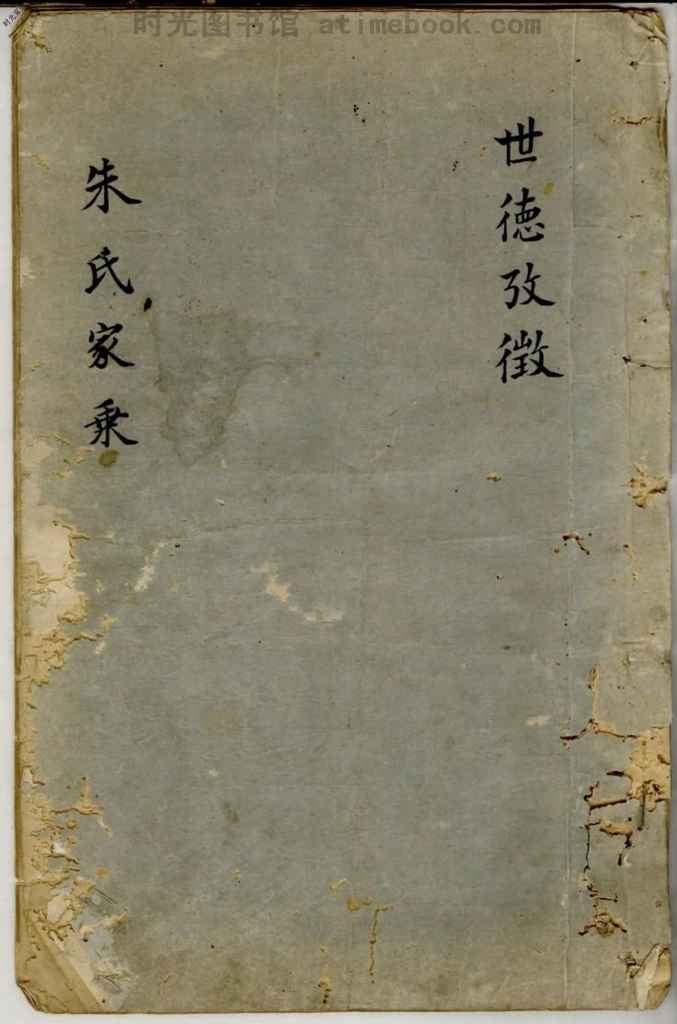 时光图书馆 atimebook.com
世德攷徵
朱氏家乗